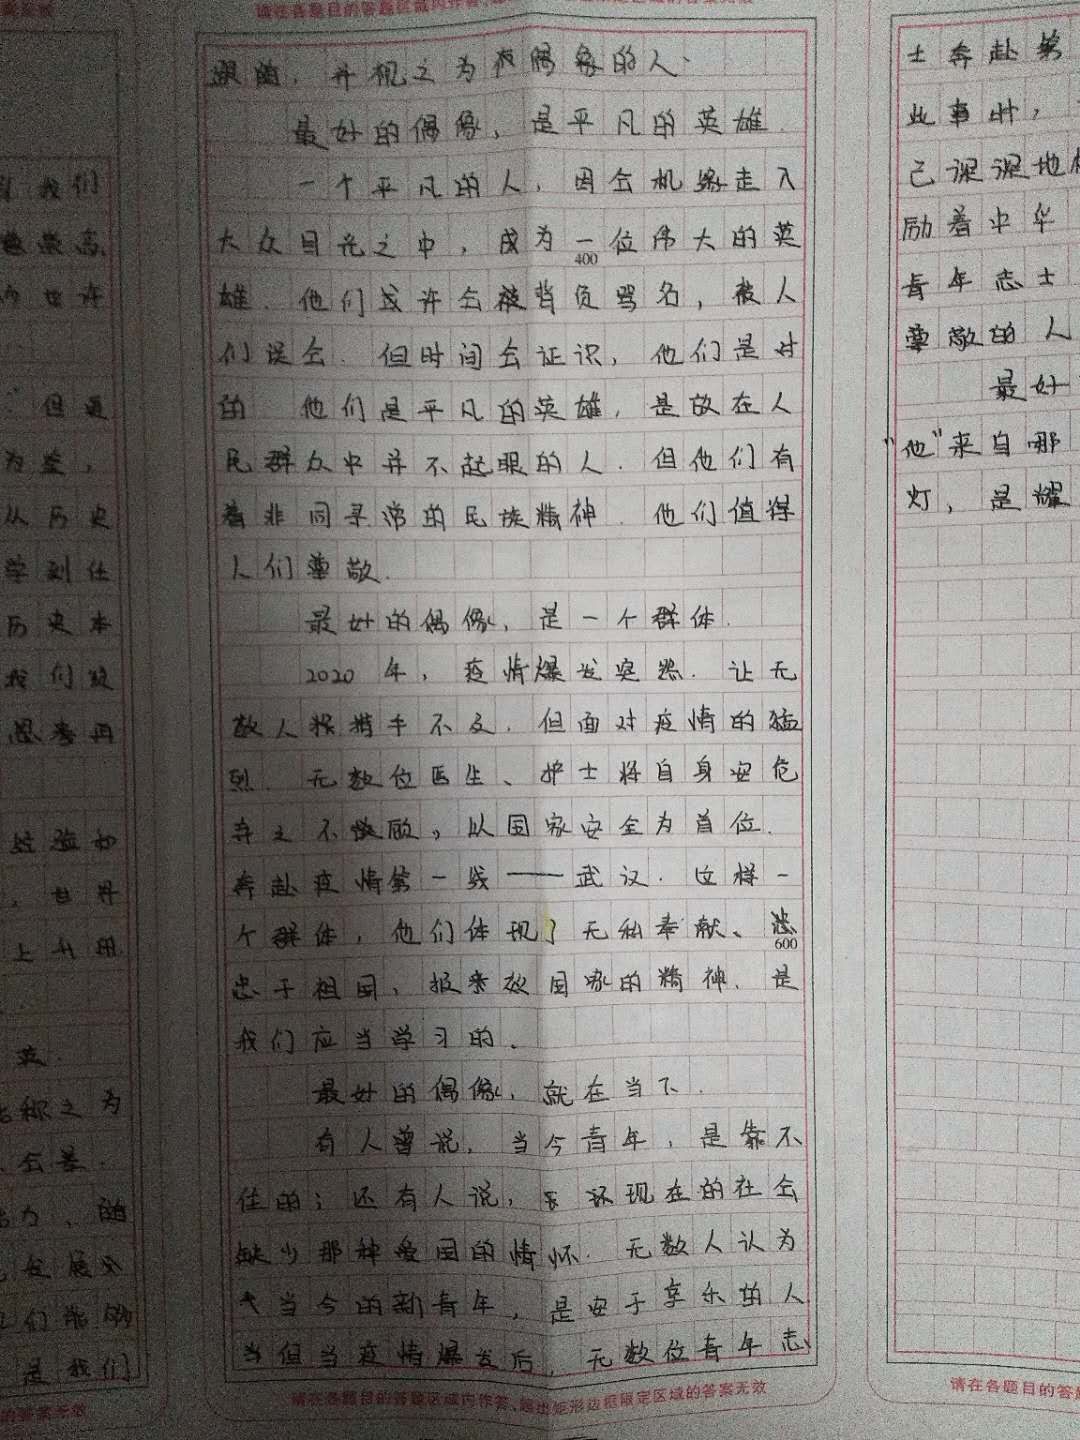 请在各题目的答题区域内作答
我们
但
为鉴，
从历史
学到
历史本
我们
思考再
，世界
上升
称之为
发展
们能够
是我们
的答案无效
跟随，并视之为偶像的人.
最好的偶像，是平凡的英雄.
一个平凡的人，因会机缘走入
大众目光之中，成为一位伟大的英
400
雄.他们或许会被背负骂名，被人
们误会.但时间会证识，他们是对
的 他们是平凡的英雄，是放在人
民群众中并不起眼的人.但他们有
着非同寻常的民族精神.他们值得
人们尊敬.
最好的偶像，是一个群体.
2020年，疫情爆发突然.让无
数人措手不及.但面对疫情的猛
烈.无数位医生、护士将自身安危
弃之不顾，以国家安全为首位.
奔赴疫情第一线——武汉.这样一
个群体，他们体现了无私奉献、
600
忠于祖国，报效国家的精神.是
我们应当学习的.
最好的偶像，就在当下.
有人曾说，当今青年，是靠不
住的；还有人说，现在的社会
缺少那种爱国的情怀.无数人认为
当今的新青年，是安于享乐的人
当但当疫情爆发后，无数位青年志
请在各题目的答题区域内作答，超出矩形边框限定区域的答案无效
士奔赴第
此事时，
己深深地
励着中华
青年志士
尊敬的人
最好
“他”来自哪
灯，是耀
请在各题目的答题